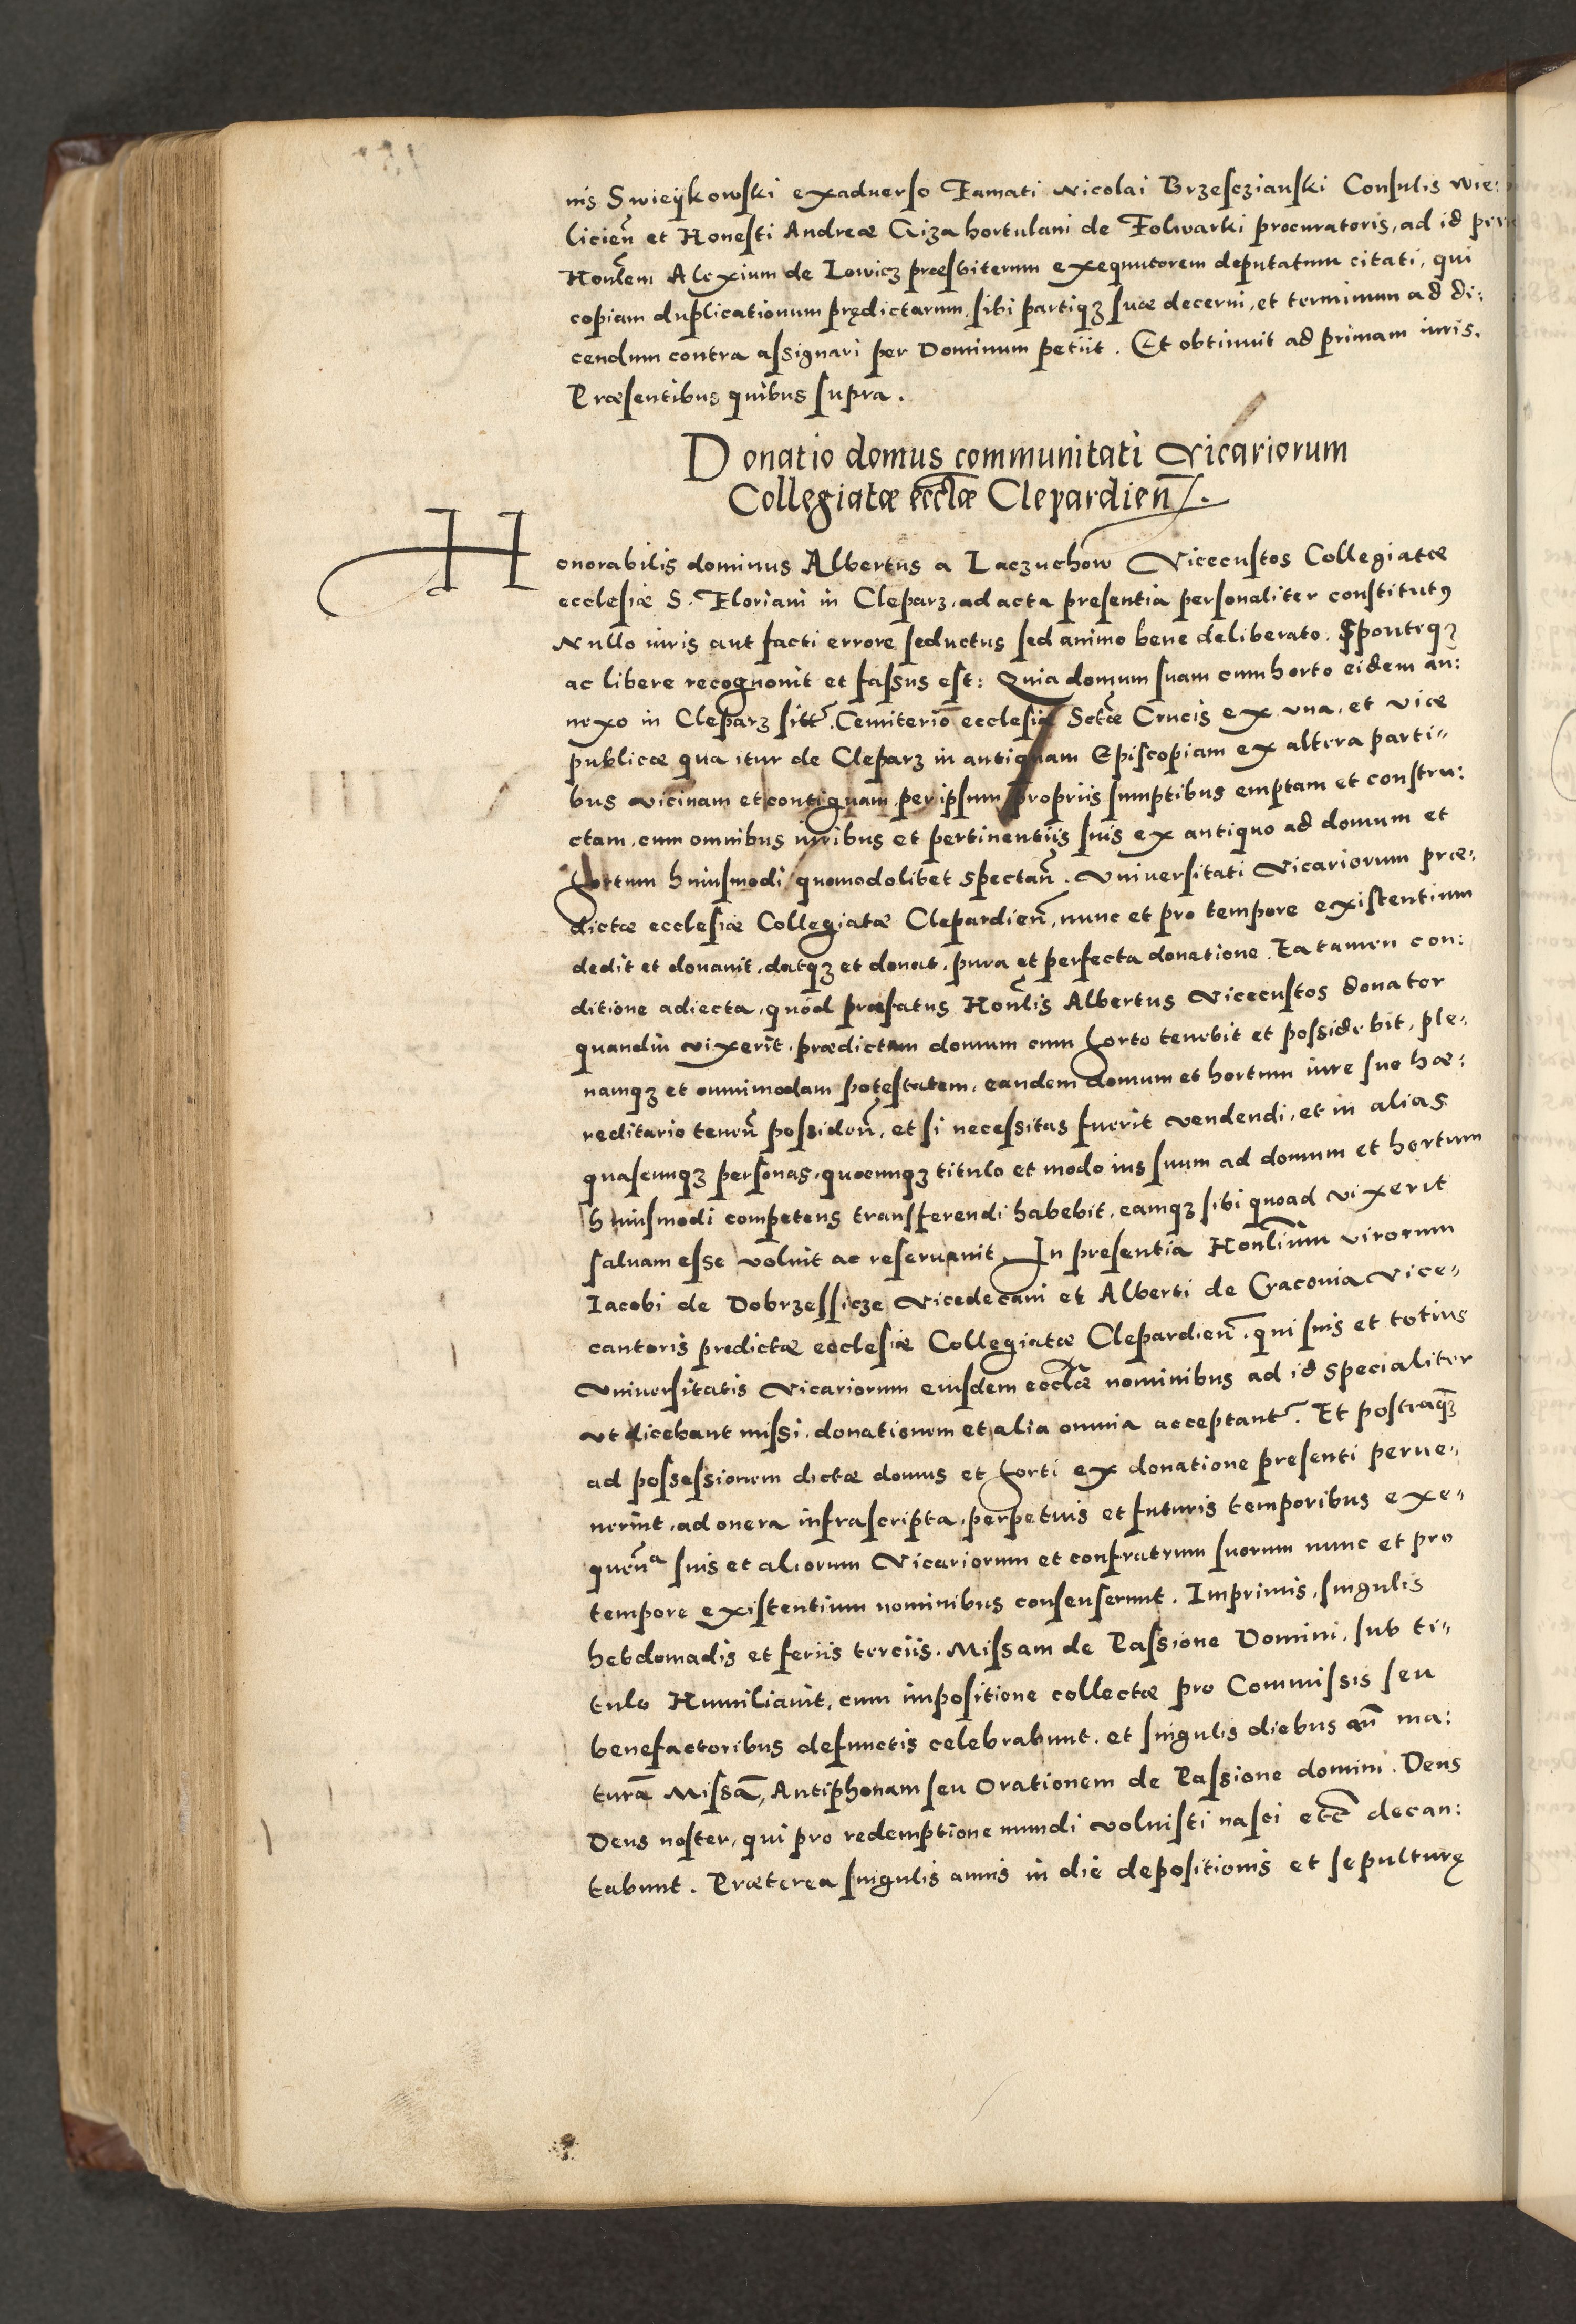 nis Swieykowski exaduerso Famati Nicolai Brzesczianski Consulis Wie:
licień et Honesti Andreæ Ciza hortulani de Folwarki procuratoris, ad id per
Honlem Alexium de Lowicz præsbiterum exequutorem deputatum citati, qui
copiam duplicationum prędictarum, sibi partiqȝ suæ decerni, et terminum ad di:
cendum contra assignari per Dominum petiit. Et obtinuit ad primam iuris.
Præsentibus quibus supra.
Donatio domus communitati Vicariorum
Collegiatæ ecclæ Clepardień.
Honorabilis dominus Albertus a Laczuchow Vicecustos Collegiatæ
ecclesiæ S. Floriani in Cleparz, ad acta presentia personaliter constitutꝰ
Nullo iuris aut facti errore seductus sed animo bene deliberato. Sponteqȝ
ac libere recognouit et fassus est: Quia domum suam cum horto eidem an:
nexo in Cleparz sitt. Cemiterio ecclesiæ Sctæ Crucis ex vna, et viæ
publicæ qua itur de Cleparz in antiquam Episcopiam ex altera parti-
bus vicinam et contiguam, per ipsum propriis sumptibus emptam et constru:
ctam, cum omnibus iuribus et pertinentiis suis ex antiquo ad domum et
hortum huiusmodi quomodolibet spectań. Vniuersitati Vicariorum præ-
dictæ ecclesiæ Collegiatæ Clepardień, nunc et pro tempore existentium
dedit et donauit, datqȝ et donat, pura et perfecta donatione. Ea tamen con:
ditione adiecta, quod præfatus Honlis Albertus Vicecustos donator
quandiu vixerit, prædictam domum cum horto tenebit et possidebit, ple-
namqȝ et omnimodam potestatem, eandem domum et hortum iure suo hæ:
reditario teneń possideń, et si necessitas fuerit vendendi, et in alias
quascunqȝ personas, quocunqȝ titulo et modo ius suum ad domum et hortum
huiusmodi competens transferendi habebit, eamqȝ sibi quoad vixerit
saluam esse voluit ac reseruauit. In presentia Honlium virorum
Iacobi de Dobrzessicze Vicedecani et Alberti de Craconia Vice-
cantoris predictæ ecclesiæ Collegiatæ Clepardień. qui suis et totius
Vniuersitatis Vicariorum eiusdem ecclæ nominibus ad id specialiter
vt dicebant missi, donationem et alia omnia acceptant. Et postꝗ̃
ad possessionem dictæ domus et horti ex donatione presenti perue-
nerint, ad onera infrascripta, perpetuis et futuris temporibus exe-
queńa suis et aliorum Vicariorum et confratrum suorum nunc et pro
tempore existentium nominibus consenserunt. Imprimis, singulis
hebdomadis et feriis terciis. Missam de Passione Domini, sub ti-
tulo Humiliauit, cum impositione collectæ pro Commissis seu
benefactoribus defunctis celebrabunt. et singulis diebus añ ma:
turã Missã, Antiphonam seu Orationem de Passione domini. Deus
Deus noster, qui pro redemptione mundi voluisti nasci etc̃ decan:
tabunt. Præterea singulis annis in die depositionis et sepulturę